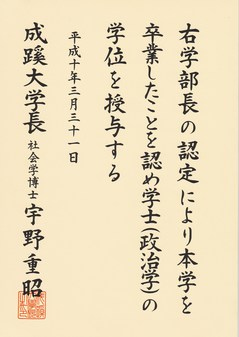 右学部長の認定により本学を
卒業したことを認め学士(政治学)の
学位を授与する
平成十年三月三十一日
成蹊大学長 社会学博士 宇野重昭